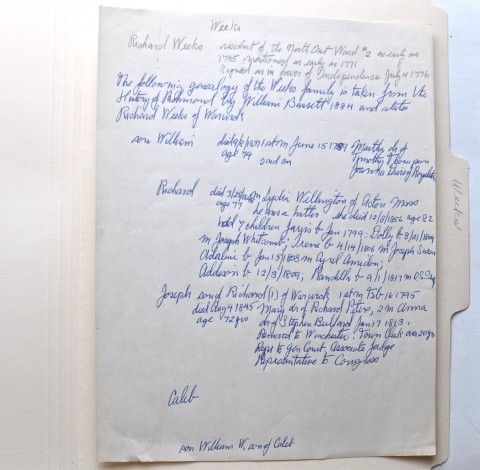 Weeks
Richard Weeks resident of the North End Ward #2 as early as
1785 mentioned as early as 1771
Signed as in favor of Independence July 4 1776
The following genealogy of the Weeks family is taken from the
History of Richmond by William Bassett 1884 and states
Richard Weeks of Warwick
son William died 1st m June 15 1789 Martha dr of
age 74 2nd m Timothy Thompson
Joanna
Richard died Lydia Willington of Acton Mass
age 77 he was a hatter. She died 12/8/1856 age 82
had 7 children b Jan 1799: Dolly b 8/21/1804
m Joseph Whitcomb; Irene b 4/14/1806 m Joseph Swan
Adaline b Jan 15/1808 m Amidon;
Addison b 12/3/1809, b 9/1/1817 m
Joseph son of Richard (1) of Warwick 1st m Feb 16 1795
died Aug 4 1845 Mary dr of Richard Peters, 2 m Anna
age 72 yrs dr of Stephen Bullard Jan 17 1813.
Removed to Winchester. Town Clerk over 20 yrs
Reps to Gen Court Associate Judge
Representative to Congress
Caleb
son William W. son of Caleb
Weeks